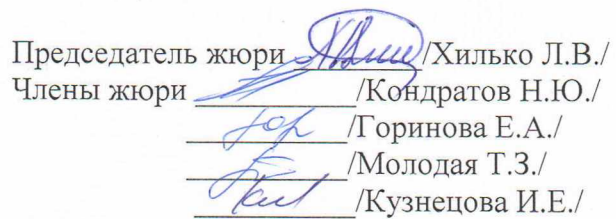 Председатель жюри /Хилько Л.В./
Члены жюри /Кондратов Н.Ю./
/Горинова Е.А./
/Молодая Т.З./
/Кузнецова И.Е./